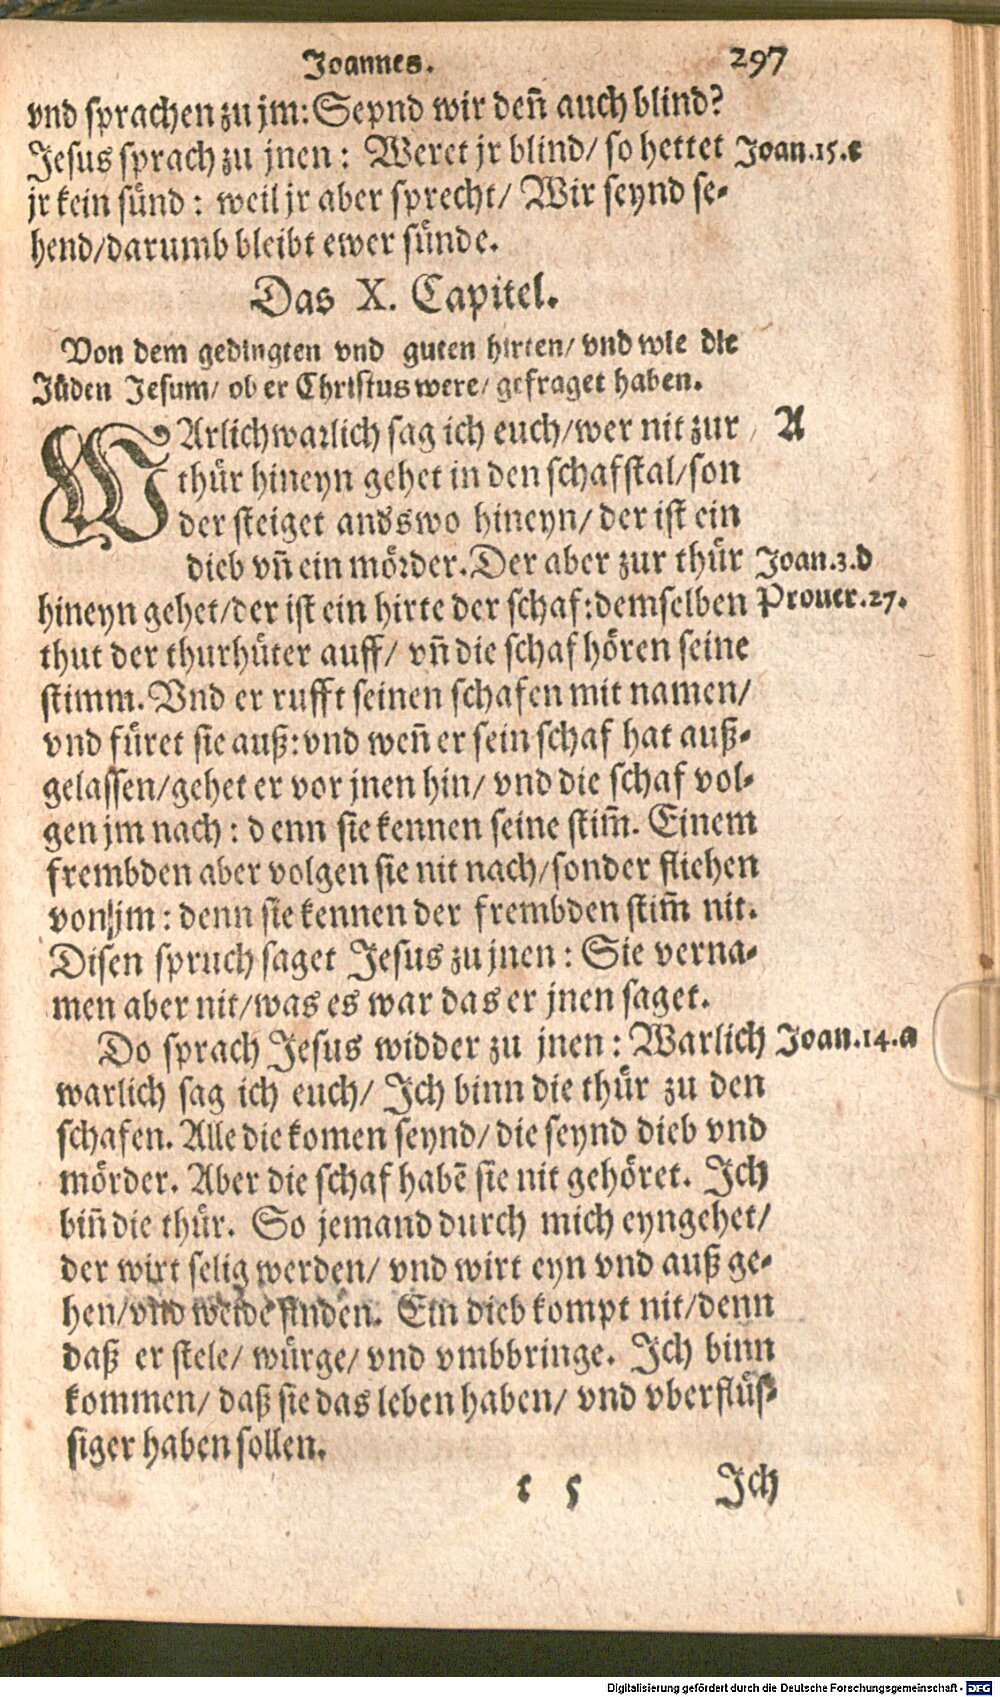 Joannes. 297
vnd sprachen zu jm: Seynd wir deñ auch blind?
Jesus sprach zu jnen: Weret jr blind/ so hettet Joan.15.c
jr kein sünd: weil jr aber sprecht/ Wir seynd se-
hend/darumb bleibt ewer sünde.
Das X. Capitel.
Von dem gedingten vnd guten hirten/ vnd wie die
Jüden Jesum/ ob er Christus were/ gefraget haben.
WArlich warlich sag ich euch/wer nit zur A
thür hineyn gehet in den schafstal/son
der steiget andswo hineyn/ der ist ein
dieb vñ ein mörder. Der aber zur thür Joan.3.d
hineyn gehet/der ist ein hirte der schaf: demselben Prouer.27.
thut der thurhüter auff/ vñ die schaf hören seine
stimm. Vnd er rufft seinen schafen mit namen/
vnd füret sie auß: vnd weñ er sein schaf hat auß-
gelassen/gehet er vor jnen hin/ vnd die schaf vol-
gen jm nach: denn sie kennen seine stim̃. Einem
frembden aber volgen sie nit nach/sonder fliehen
von jm: denn sie kennen der frembden stim̃ nit.
Disen spruch saget Jesus zu jnen: Sie verna-
men aber nit/was es war das er jnen saget.
Do sprach Jesus widder zu jnen: Warlich Joan.14.a
warlich sag ich euch/ Ich binn die thür zu den
schafen. Alle die komen seynd/ die seynd dieb vnd
mörder. Aber die schaf habē sie nit gehöret. Ich
biñ die thür. So jemand durch mich eyngehet/
der wirt selig werden/ vnd wirt eyn vnd auß ge-
hen/vnd weide finden. Ein dieb kompt nit/denn
daß er stele/ würge/ vnd vmbbringe. Ich binn
kommen/ daß sie das leben haben/ vnd vberflüs-
siger haben sollen.
t 5 Ich
Digitalisierung gefördert durch die Deutsche Forschungsgemeinschaft - DFG